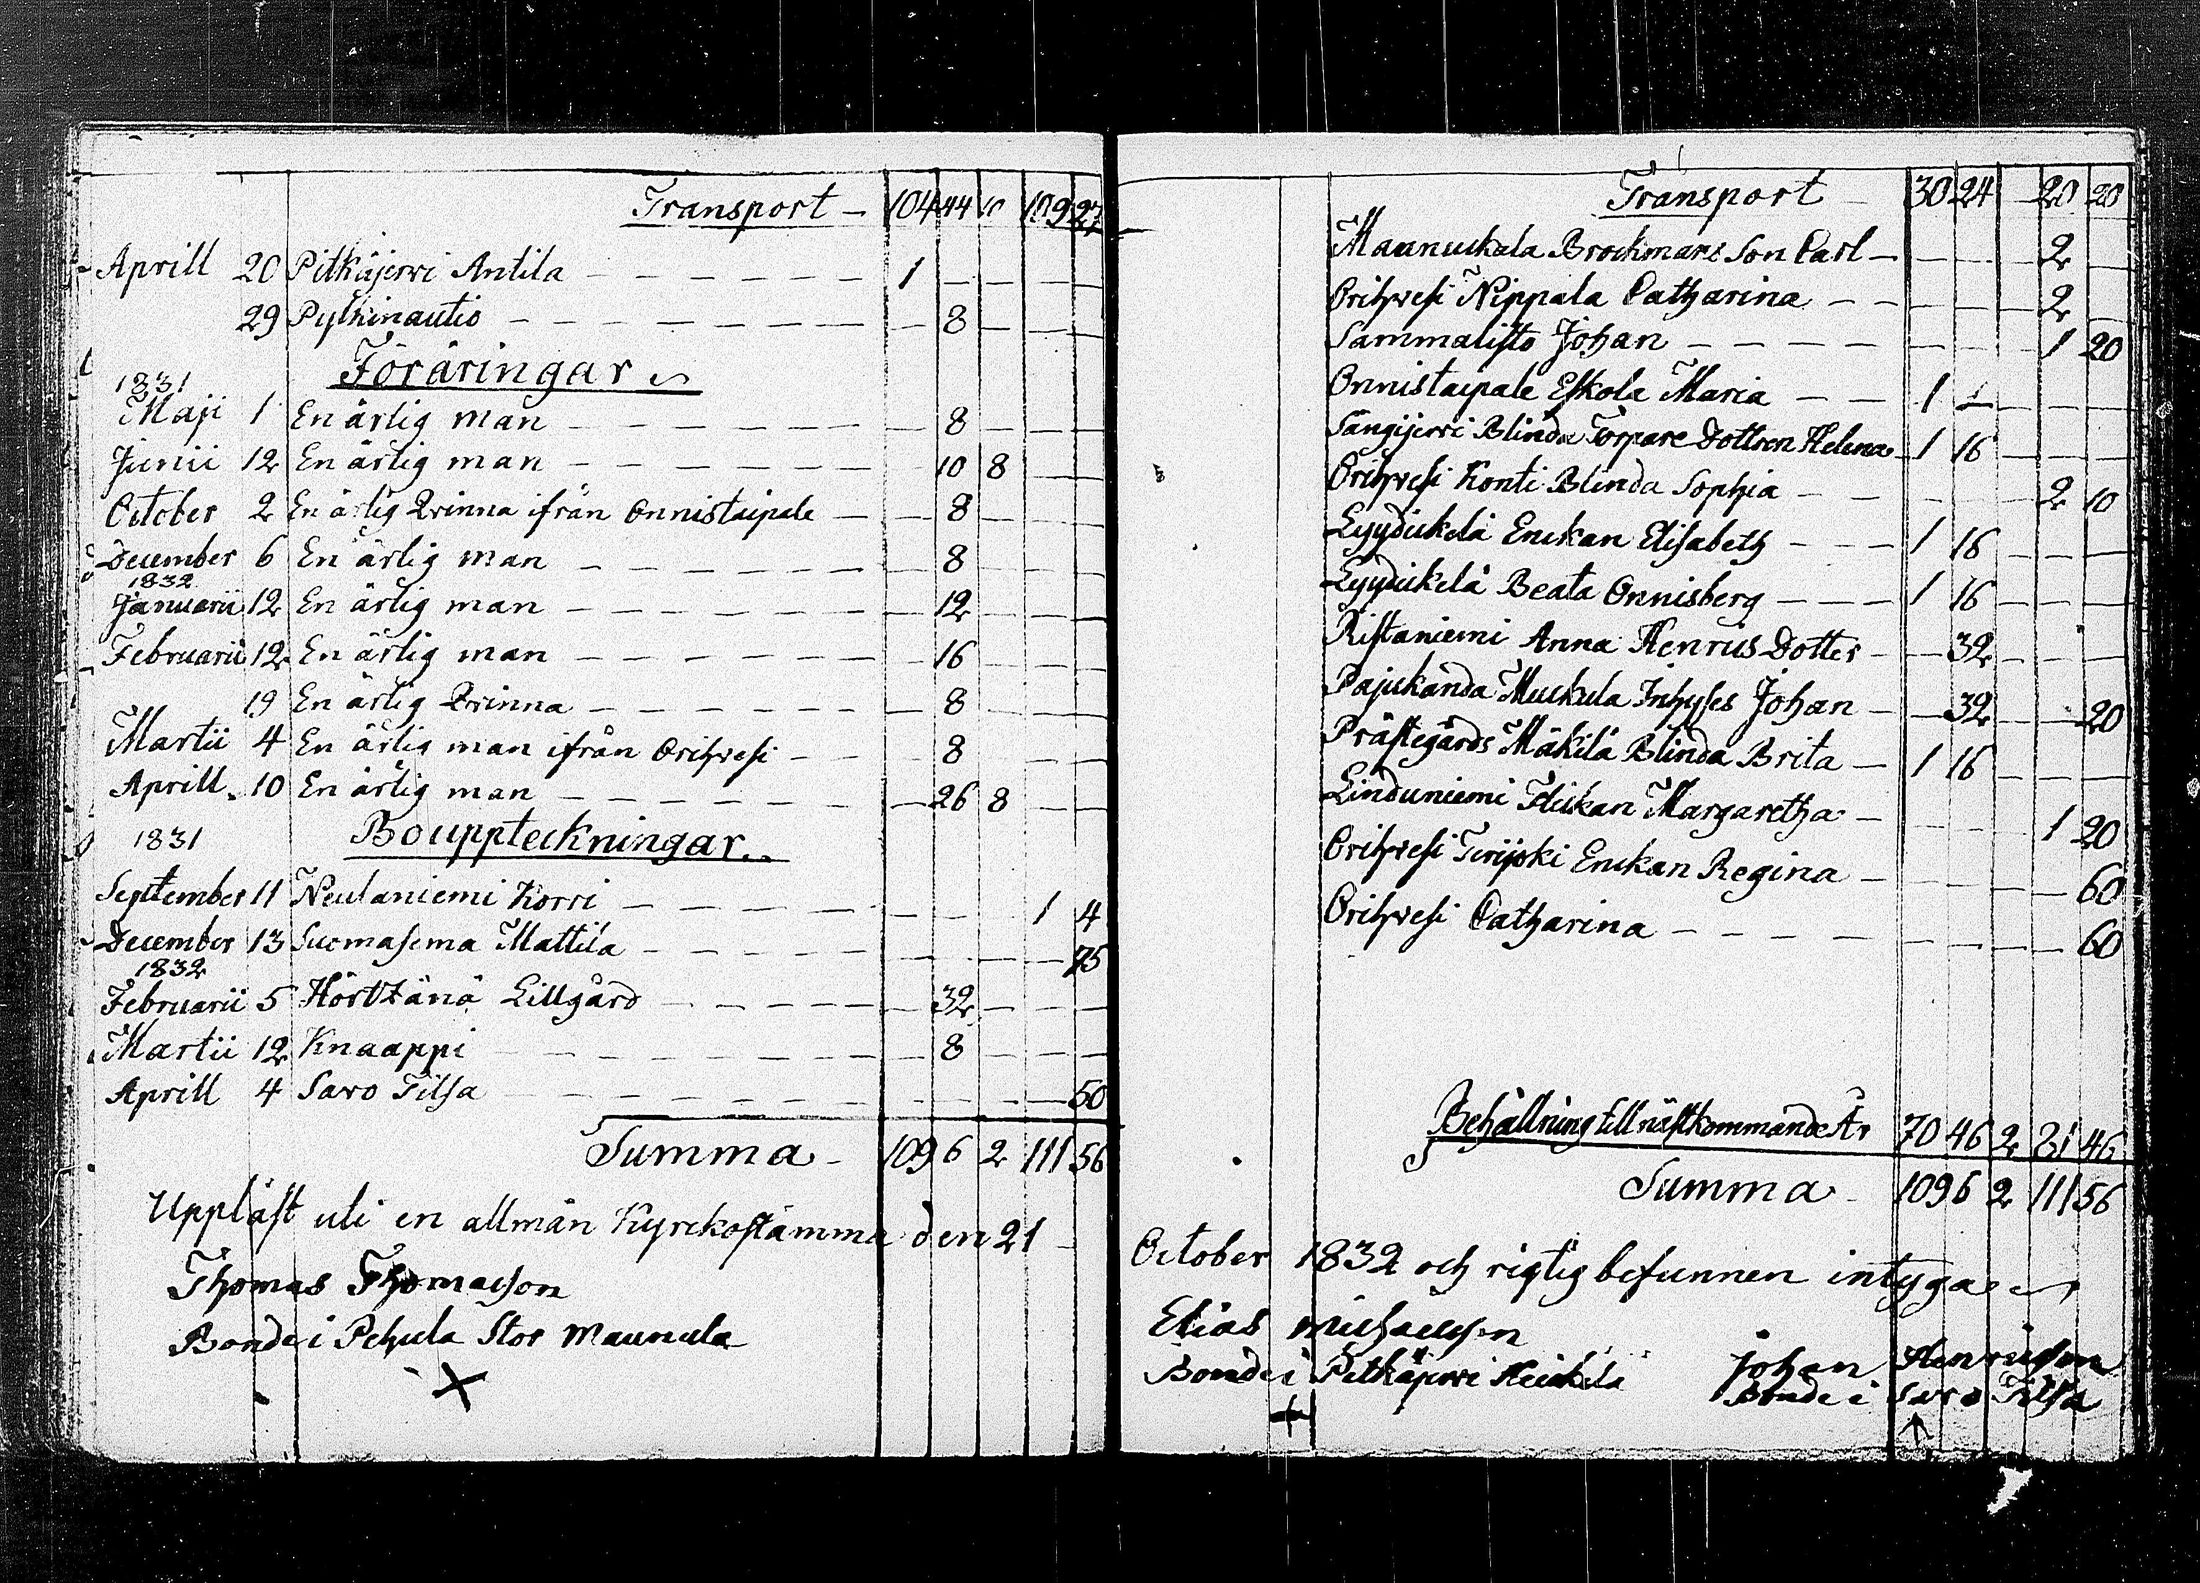 Transport - 104 44 10 109 27
Aprill 20 Pitkäjerwi Antila - - - - - - 1 - - - -
29 Pytkinautio - - - - - - - - 8 - - -
Föräringar
1831
Maji 1 En ärlig man - - - - - - - 8 - - -
Junii 12 En ärlig man - - - - - - - 10 8 - -
October 2 En ärlig Qvinna ifrån Onnistaipale - - 8 - - -
December 6 En ärlig man - - - - - - - 8 - - -
1832
Januarii 12 En ärlig man - - - - - - - 12 - - -
Februarii 12 En ärlig man - - - - - - - 16 - - -
19 En ärlig Qvinna - - - - - - - 8 - - -
Martii 4 En ärlig man ifrån Orihvesi - - - 8 - - -
Aprill 10 En ärlig man - - - - - - - 26 8 - -
1831 Bouppteckningar
September 11 Neulaniemi Korri - - - - - - - - - 1 4
December 13 Suomasema Mattila - - - - - - - - - 75
1832
Februarii 5 Hörttänä Lillgård - - - - - - 32 - - -
Martii 12 Knaappi - - - - - - - - 8 - - -
Aprill 4 Savo Tilsa - - - - - - - - - - - 50
Summa - 109 6 2 111 56
Uppläst uti en allmän Kyrckostämma den 21
Thomas Thomasson
Bonde i Pehula Stor Maunula
X
Transport - 30 24 - 20 20
Maunuckala Brockmans Son Carl - - - - 2 -
Orihvesi Nippala Catharina - - - - - 2 -
Sammalisto Johan - - - - - - - - 1 20
Onnistaipale Eskola Maria - - 1 - - - -
Sängijerwi Blinda Torpare Dottren Helena - 1 16 - - -
Orihvesi Konti Blinda Sophia - - - - - 2 10
Lyydickelä Enckan Elisabeth - - - 1 16 - - -
Lyydickelä Beata Onnisberg - - - 1 16 - - -
Ristaniemi Anna Henrics Dotter - - 32 - - -
Pajukanda Muckula Inhyses Johan - - 32 - - 20
Prästegårds Mäkilä Blinda Brita - 1 16 - - -
Linduniemi Huckan Margaretha - - - - 1 20
Orihvesi Terijoki Enckan Regina - - - - - 60
Orihvesi Catharina - - - - - - - - 60
Behållning till nästkommande År 70 46 2 81 46
Summa - 109 6 2 111 56
October 1832 och rigtig befunnen intyga
Elias Michaelson
Bonde i Pitkäjerwi Heickelä
+
Johan Henricson
Bonde i Savo Tilsa